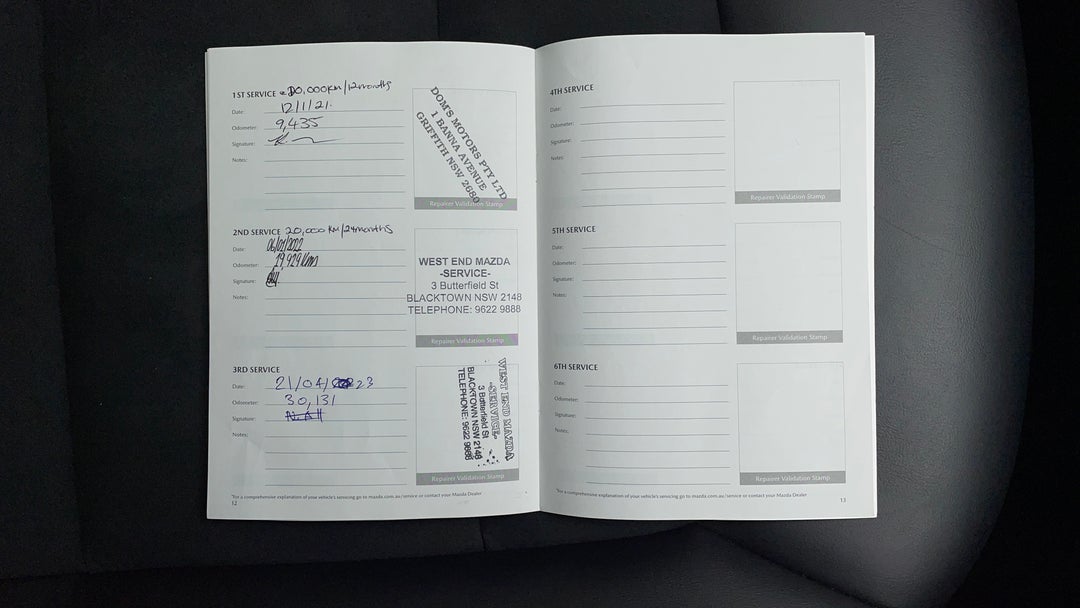 1ST SERVICE 10,000KM/12months
Date: 12/1/21.
Odometer: 9,435
Signature:
Notes:
DOM'S MOTORS PTY LTD
1 BANNA AVENUE
GRIFFITH NSW 2680
Repairer Validation Stamp
2ND SERVICE 20,000 KM/24months
Date: 06/01/2022
Odometer: 19,929 Kms
Signature:
Notes:
WEST END MAZDA
-SERVICE-
3 Butterfield St
BLACKTOWN NSW 2148
TELEPHONE: 9622 9888
Repairer Validation Stamp
3RD SERVICE
Date: 21/04/23
Odometer: 30,131
Signature:
Notes:
WEST END MAZDA
-SERVICE-
3 Butterfield St
BLACKTOWN NSW 2148
TELEPHONE: 9622 9888
Repairer Validation Stamp
*For a comprehensive explanation of your vehicle's servicing go to mazda.com.au/service or contact your Mazda Dealer
12
4TH SERVICE
Date:
Odometer:
Signature:
Notes:
Repairer Validation Stamp
5TH SERVICE
Date:
Odometer:
Signature:
Notes:
Repairer Validation Stamp
6TH SERVICE
Date:
Odometer:
Signature:
Notes:
Repairer Validation Stamp
*For a comprehensive explanation of your vehicle's servicing go to mazda.com.au/service or contact your Mazda Dealer
13